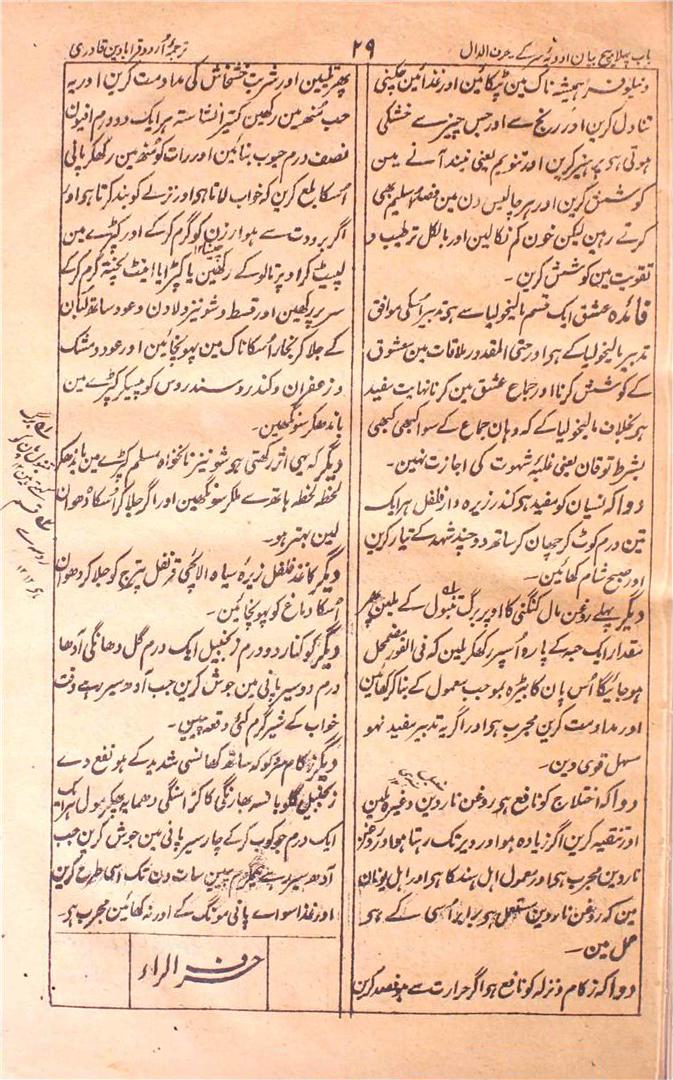 باب پہلا بیچ بیان ادویۂ سر کے۔ حرف الدال
۲۹
ترجمۂ اردو قرابادین قادری
و نیلوفر ہمیشہ ناک مین ٹپکائین اور غذائین چکنی
تناول کرین اور رنج سے اور جس چیز سے خشکی
ہوتی ہو پرہیز کرین اور تنویم یعنی نیند آنے مین
کوشش کرین اور ہر چالیس دن مین فصد اسلیم بھی
کرتے رہین لیکن خون کم نکالین اور بالکل ترطیب و
تقویت مین کوشش کرین۔
فائدہ عشق ایک قسم مالیخولیا سے ہی تدبیر اسکی موافق
تدبیر مالیخولیا کے ہو اور حتی المقدور ملاقات مین معشوق
کے کوشش کرنا اور جماع عشق مین کرنا نہایت مفید
ہو بخلاف مالیخولیا کے کہ وہان جماع کے سوا کبھی کبھی
بشرط توقان یعنی غلبۂ شہوت کی اجازت نہین۔
دوا کہ نسیان کو مفید ہو کندر زیرہ دار فلفل ہر ایک
تین درم کوٹ کر چھان کر ساتھ دو چند شہد کے تیار کرین
اور صبح شام کھائین۔
دیگر پہلے روغن مال کنگنی کا اوپر برگ تنبول کے ملین پھر
مقدار ایک حبہ کے پارہ اُسپر رکھکر ملین کہ فی الفور مضمحل
ہو جائیگا اُس پان کا بیڑہ بموجب معمول کے بنا کر کھائین
اور مداومت کرین مجرب ہی اور اگر یہ تدبیر مفید نہو
مسہل قوی دین۔
دوا کہ اختلاج کو نافع ہو روغن ناردین وغیرہ ملین
اور تنقیہ کرین اگر زیادہ ہو اور دیر تک رہتا ہو اور روغن
ناردین مجرب ہی اور معمول اہل ہند کا ہی اور اہل یونان
مین کہ روغن ناردین مستعمل ہو برابر اُسی کے ہی
عمل مین۔
دوا کہ زکام و نزلہ کو نافع ہو اگر حرارت سے ہو فصد کرین
پھر تلیین اور شربت خشخاش کی مداومت کرین اور یہ
حب مُنھ مین رکھین کتیرا نشاستہ ہر ایک دو درم افیون
نصف درم حبوب بنائین اور رات کو مُنھ مین رکھکر پانی
اُسکا بلع کرین کہ خواب لاتا ہو اور نزلے کو بند کرتا ہو اور
اگر برودت سے ہو ارزن کو گرم کر کے اور کپڑے مین
لپیٹ کر اوپر تالو کے رکھین یا کپڑا یا اینٹ پختہ گرم کر کے
سر پر رکھین اور قسط و شونیز و لادن و عود ساتھ لبان
کے جلا کر بخار اُسکا ناک مین پہونچائین اور عود و مشک
و زعفران و کندر و سندروس کو پیسکر کپڑے مین
باندھکر سونگھین۔
دیگر کہ یہی اثر رکھتی ہو شونیز نانخواہ مسلم کپڑے مین باندھکر
لحظہ لحظہ ہاتھ سے ملکر سونگھین اور اگر جلا کر اُسکا دھوان
لین بہتر ہو۔
دیگر کاغذ فلفل زیرۂ سیاہ الائچی قرنفل پترج کو جلا کر دھوان
اُسکا دماغ کو پہونچائین۔
دیگر کوکنار دو درم زنجبیل ایک درم گل دھانگی آدھا
درم دو سیر پانی مین جوش کرین جب آدھ سیر رہے وقت
خواب کے شیر گرم کئی دفعہ پیین۔
دیگر زکام مفرد کو کہ ساتھ کھانسی شدید کے ہو نفع دے
زنجبیل گلو بانسہ بھارنگی کاکڑاسنگی دھمایہ پھکر مول ہر ایک
ایک درم جوکوب کر کے چار سیر پانی مین جوش کرین جب
آدھ سیر رہے پیین سات دن تک اسی طرح کرین
اور غذا سوا پانی مونگ کے اور نہ کھائین مجرب ہی۔
حرف الراء